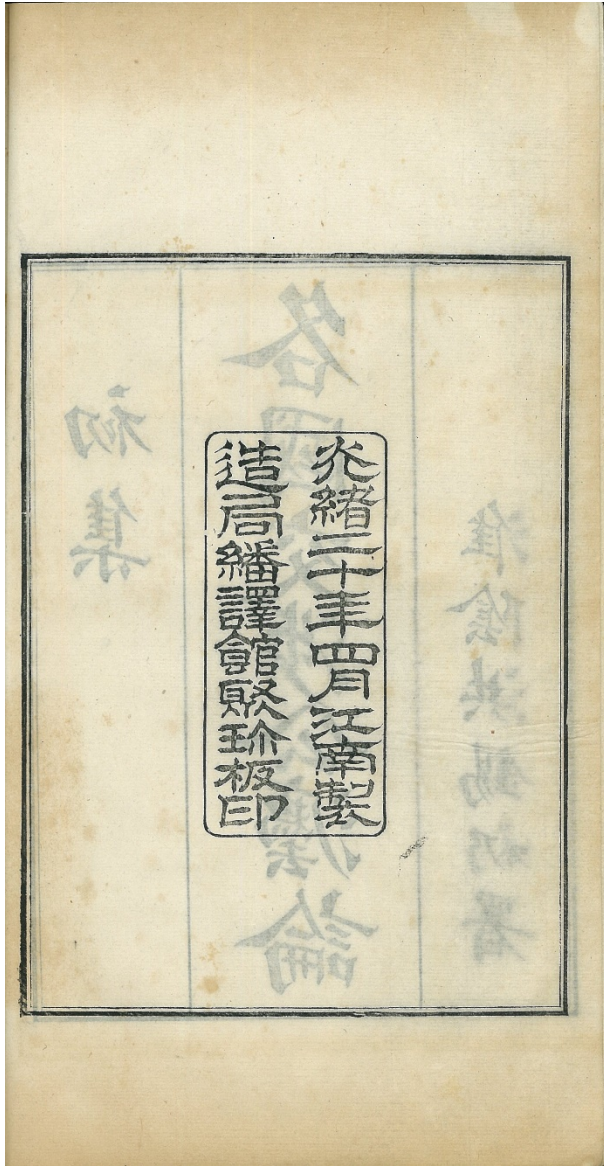 光緒二十年四月江南製
造局繙譯館聚珍板印